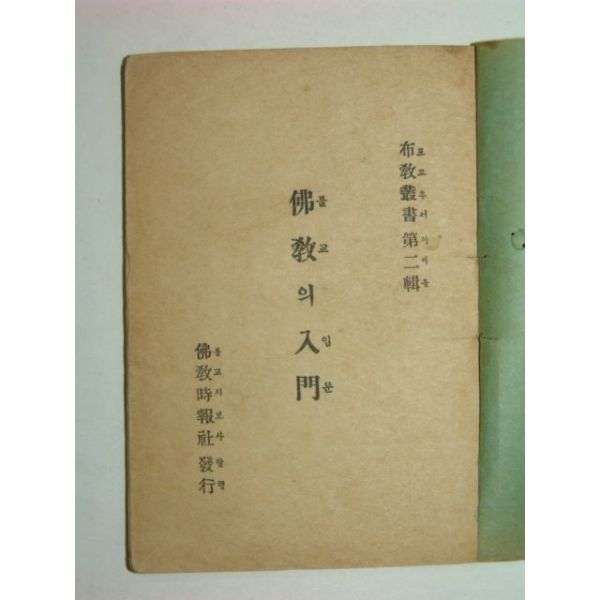 布敎叢書第二輯
佛敎의入門
불교 입문
佛敎時報社發行
불교시보사발행